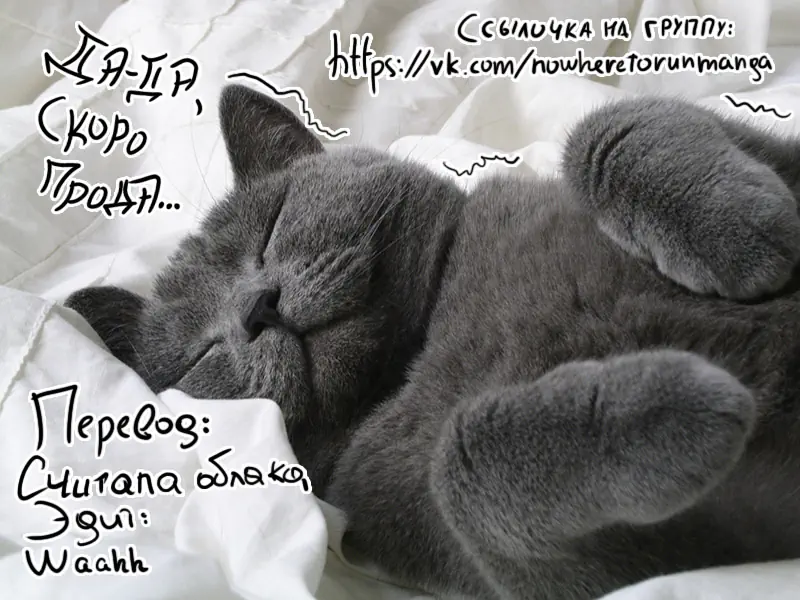 Да-да,
Скоро
прода...
Ссылочка на группу:
https://vk.com/nowheretorunmanga
Перевод:
Считала облака,
Эдит:
Waahh